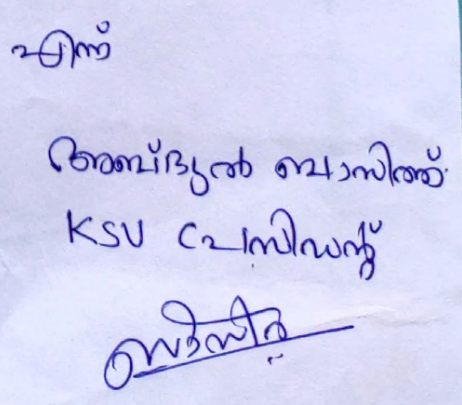 എന്ന്
അബ്ദുൽ ബാസിത്ത്
KSU പ്രസിഡന്റ്